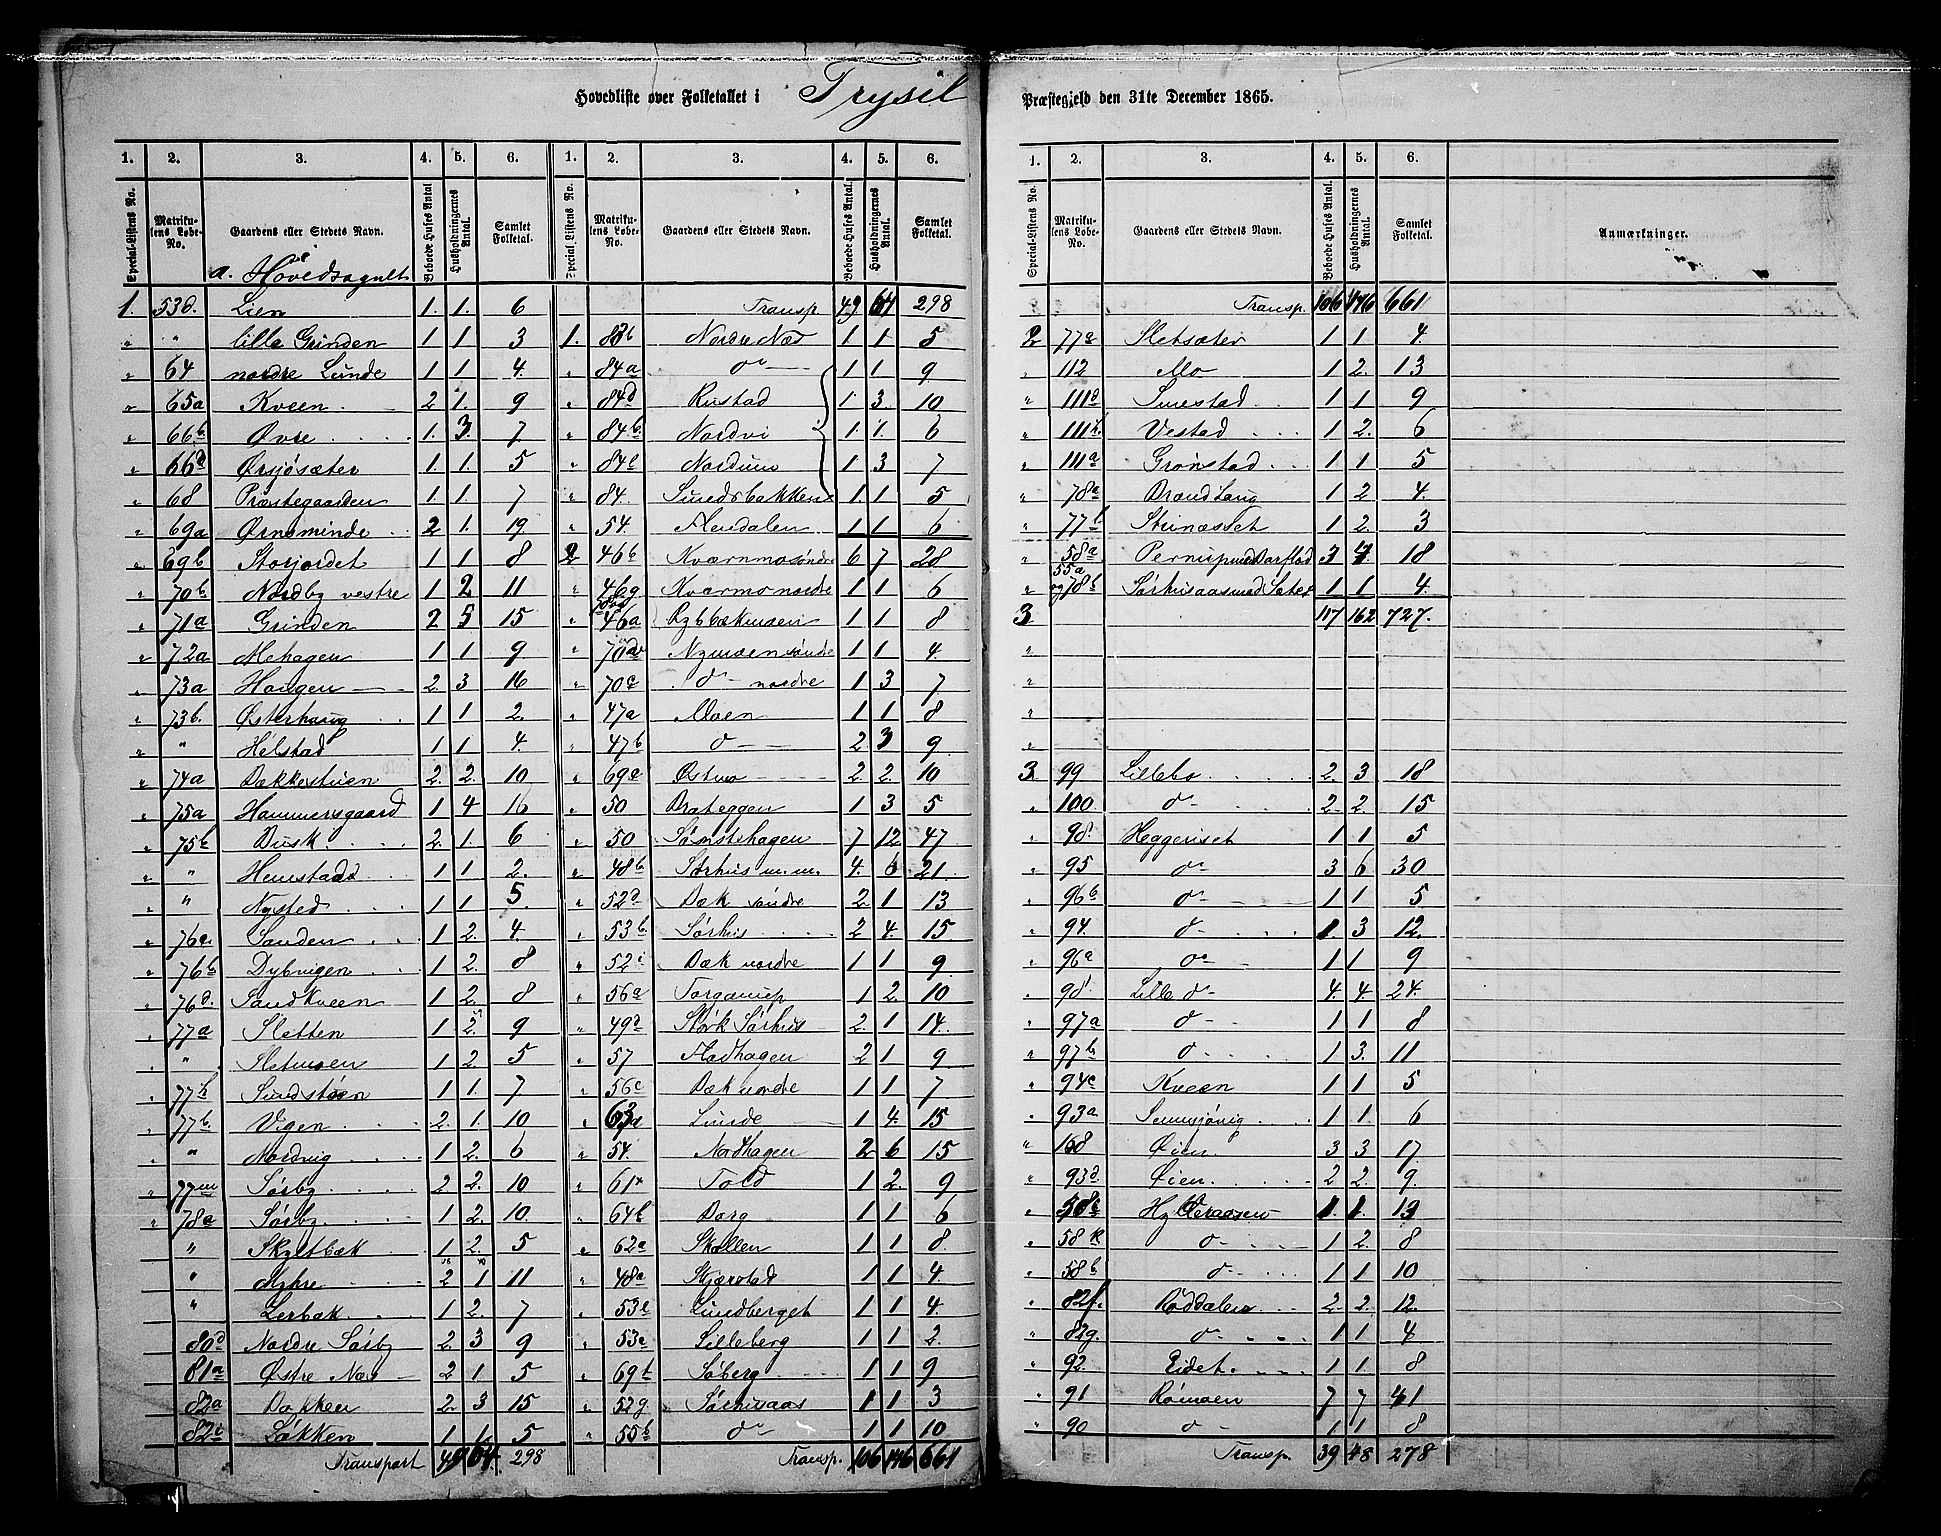 Hovedliste over Folketallet i Trysil Præstegjeld den 31te December 1865.
1. 2. 3. 4. 5. 6. 1. 2. 3. 4. 5. 6.
Special-Listens No. Matrikulens Løbe-No. Gaardens eller Stedets Navn. Beboede Huses Antal Husholdningernes Antal. Samlet Folketal. Special Listens No. Matrikulens Løbe-No. Gaardens eller Stedets Navn. Beboede Huses Antal. Husholdningernes Antal. Samlet Folketal.
a. Hovedsognet
1. 53d. Lien 1. 1. 6
" " lille Grinden 1 1 3
" 64 nordre Lunde 1 1 4.
" 65a Kveen 2 1. 9
" 66b Øvre 1. 3. 7
" 66a Ørsjøsæter 1. 1. 5
" 68 Præstegaarden 1. 1. 7
" 69a Ørnsminde 2 1. 19
" 69b Storjordet 1 1 8
" 70b Nordby vestre 1 2 11
" 71a Grinden 2 5 15
" 72a Mehagen 1 1 9
" 73a Haugen 2 3 16
" 73b. Østerhaug 1 1 2.
" " Helstad 1 1 4.
" 74a Bakkestuen 2. 2. 10
" 75a Hammersgaard 1 4 16
" 75b Busk 2. 1. 6
" " Hemstad 1 1 2.
" " Nysted 1 1 5.
" 76a. Sanden 1 2. 4.
" 76b Dybvigen 1 2. 8
" 76d. Sandkveen 1 2. 8
" 77a Sletten 1 2. 9
" " Sletmoen 1 2. 5
" 77b Sundstøen 1 1. 7
" 77b. Vigen 2. 1. 10
" " Nordvig 1 2. 6
" 77m Sørby 2 2. 10
" 78a Sørby 1 2. 10.
" Skytbæk 1 2. 5
" Myhre 2 1 11
" Lerbak 1 2. 7
80d Nordre Sørby 2. 3 9
81a Østre Næs 2 1 5
82a Bakken 2. 3 15
82c Løkken 1 1. 5
Transport 49 64. 298
Transp. 49 64 298
1. 83b Nordre Næs 1 1 5
" 84a do 1 1 9
" 84d Rustad 1. 3. 10
" 84b. Nordvi 1. 1. 6
" 84c Nordmo 1 3 7
" 84. Sundsbakken 1 1 5
" 54. Aendalen 1 1 6
2 46b Kværnmo søndre 6 7 28
" 46g Kværnmo nordre 1 1 6
" 46a Rybbækmoen 1 1 8
" 70 Nymoen søndre 1 1 4.
" 70c do nordre 1 3 7
" 47a Moen 1 1 8
" 47b do 2 3 9
" 69e Østmo 2 2. 10
" 50 Brateggen 1 3 5
" 50 Sømstehagen 7 12 47
" 48b Sørhus m. m. 4. 6 21
" 52d Bæk søndre 2 1 13
" 53b. Sørhus 2 4. 15.
" 52i Bæk nordre 1 1 9
" 56a Torgerup 1 2. 10
" 49d Stork Sørhus 2. 1 14.
" 57 Fladhagen 2 1 9
" 56c Bæk nordre 1 1 7
" 63a Lunde 1 4. 15
" 54. Nordhagen 2 6 15
" 61 Told 1 2. 9
" 64b Borg 1 1 6
" 62a Skallen 1 1 8
" 48a Skjærstad 1 1 4.
" 53e Lundberget 1 1 4
" 53a Lilleberg 1 1 2.
" 69b Søberg 1 1 9
" 52g. Sørhusaas 1 1 3
" 55b do 1 1 10
Transp. 106 146 661
1. 2. 3. 4. 5. 6.
Special-Listens No. Matrikulens Løbe-No. Gaardens eller Stedets Navn. Beboede Huses Antal. Husholdningernes Antal. Samlet Folketal. Anmærkninger.
Transp. 106 146 661
2 77a Sletsæter 1 1 4.
" 112 Mo 1 2. 13
" 111d Smestad 1 1 9
" 111b. Vestad 1 2. 6
" 111a Grønstad 1 1 5
" 78a Brændhaug 1 2 4.
" 77b Strinæsset 1 2. 3
" 58a Pernup med Barflad 3 4 18
55a og 78b Sørhusaas med Sæter 1 1 4.
3 117 162 727.
3. 99 Lillebo 2. 3 18
" 100 do 2 2. 15
" 98. Heggeriset 1 1 5
" 95 do 3 6 30
" 96b do 1 1 5
" 94. do 1 3 12.
" 96a do 1 1 9
" 98 Lille do 4. 4. 24.
" 97a do 1 1 8
" 97b do 1 3. 11
" 94c Kveen 1 1 5
" 93a Semmsjøvig 1 1. 6
" 108 Øien 3 3 17.
" 93d Øien 2 2. 9.
" 58c Hylleraasen 1. 1. 13
" 58k do 1 2. 8
" 58b do 1 1 10
" 82f. Røddalen 2. 2. 12.
" 82g. do 1 1 4
" 92. Eidet 1 1. 8
" 91 Rømoen 7 7 41
" 90 do 1 1. 8
Transp. 39 48 278